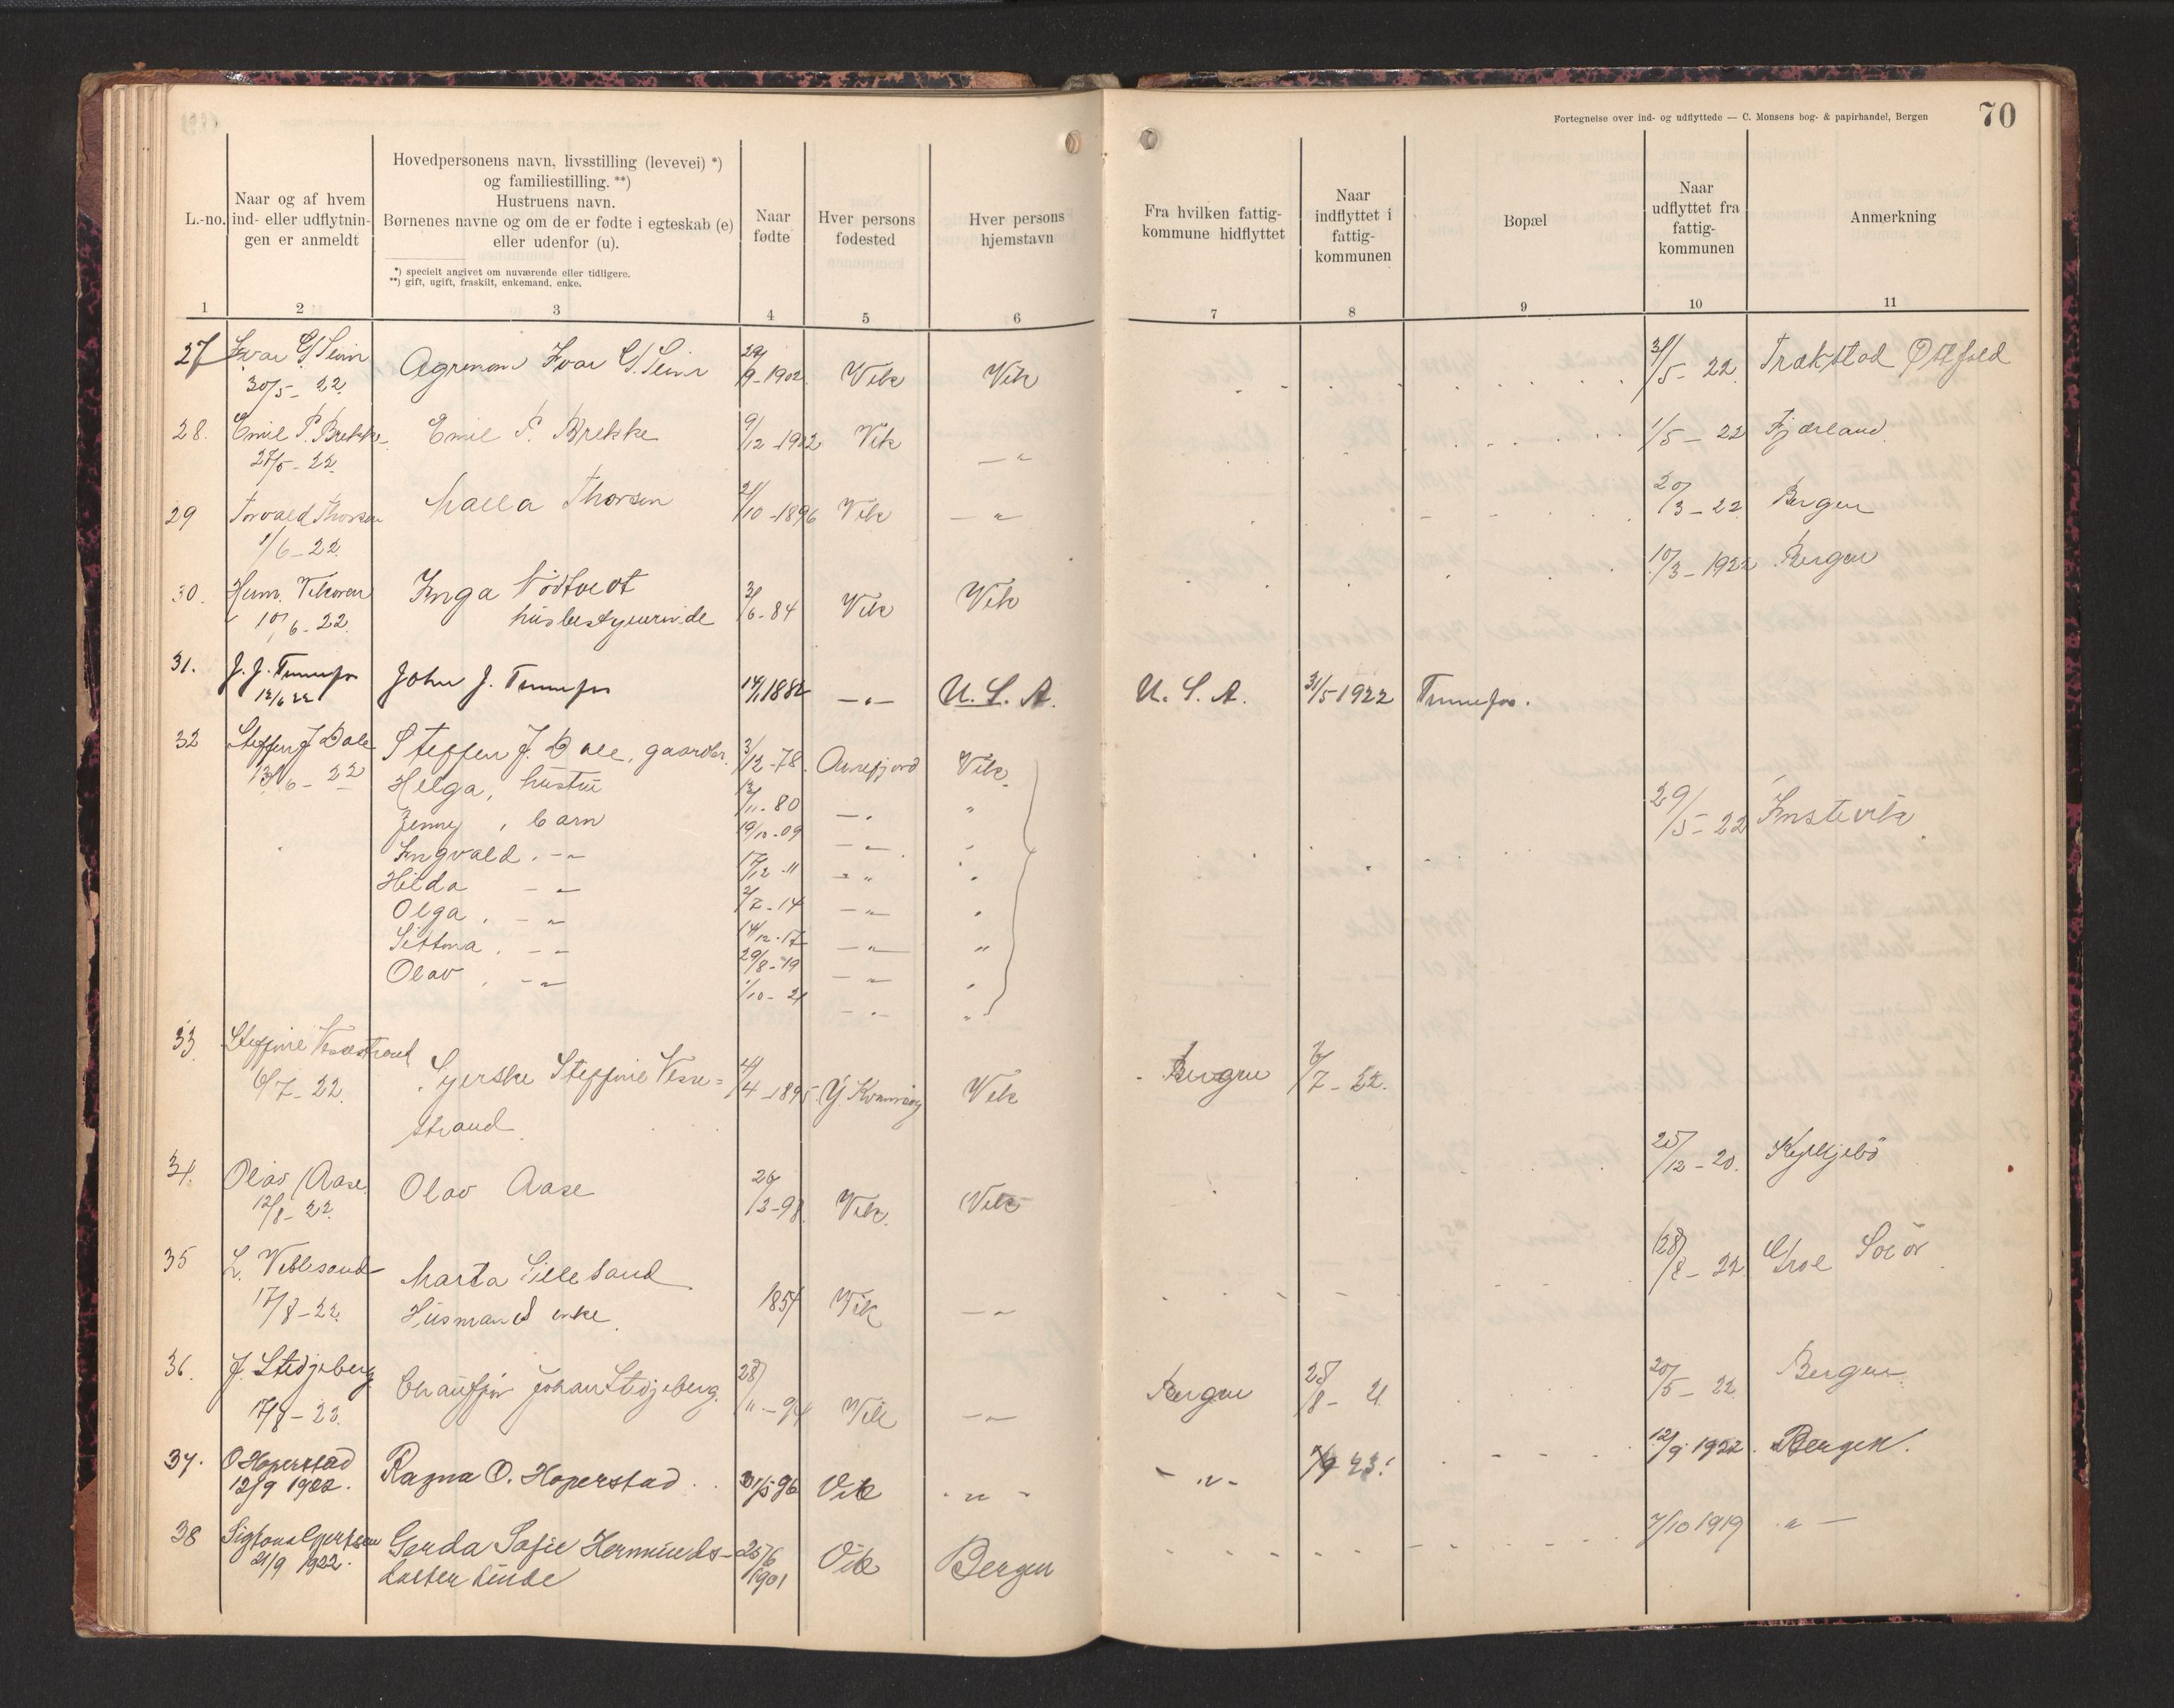 Fortegnelse over ind- og udflyttede — C. Monsens bog- & papirhandel, Bergen
70
L.-no.
Naar og af hvem
ind- eller udflytnin-
gen er anmeldt
Hovedpersonens navn, livsstilling (levevei) *)
og familiestilling. **)
Hustruens navn.
Børnenes navne og om de er fødte i egteskab (e)
eller udenfor (u).
*) specielt angivet om nuværende eller tidligere.
**) gift, ugift, fraskilt, enkemand, enke.
Naar
fødte
Hver persons
fødested
Hver persons
hjemstavn
Fra hvilken fattig-
kommune hidflyttet
Naar
indflyttet i
fattig-
kommunen
Bopæl
Naar
udflyttet fra
fattig-
kommunen
Anmerkning
1 2 3 4 5 6 7 8 9 10 11
27 Ivar G. Seim Agronom Ivar G. Seim 29/9-1902 Vik Vik 31/5-22 Trøkstad Østfold
30/5-22
28. Emil P. Brekke Emil P. Brekke 9/12-1902 Vik — " 1/5-22 Fjærland
27/5-22
29 Torvald Thorsen Malla Thorsen 21/10-1896 Vik — " 20/3-22 Bergen
1/6-22
30. Herm. Vikøren Inga Nødtvedt 3/6-84 Vik Vik 10/3-1922 Bergen
10/6-22 husbestyrerinde
31. J. J. Tennefos John J. Tennefos 14/1 1882 — " — U. S. A. U. S. A. 31/5 1922 Tennefos.
12/6 22
32 Steffen J Dale Steffen J. Dale, gaardbr. 3/12-78 Arnefjord Vik 29/5-22 Instevik
13/6-22
Helga, hustru 13/11-80 — " "
Jenny, barn 19/10-09 — " "
Ingvald, — " 17/12-11 — " "
Hilda — " 2/2-14 — " "
Olga, — " 14/12-17 — " — "
29/8-19 — " "
Olav, — " 1/10-21 — " "
33 Steffine Vesse strand Syerske Steffine Vesse= 4/4-1895 Vik Bergen 6/7-22.
6/7-22 strand
34. Olav Aase Olav Aase 26/2-98 Vik Vik 25/12-20. Kyrkjebö
12/8-22
35 Marta Lillesand 1854 Vik — " 28/8-22 Solör
17/8-22 Husmands enke
36. J. Stedjeberg Chauffør Johan Stedjeberg. 28/11-94 Vik — " Bergen 25/8-21 20/5-22 Bergen
17/8-22.
37. O Hoperstad Ragna O. Hoperstad 31/5 96 Vik — " — — " — 12/9 1922. Bergen.
12/9 1922.
38 Gerda Sofie Hermunds- 25/6 1901 Vik Bergen 7/10 1919 — " —
21/9 1922.